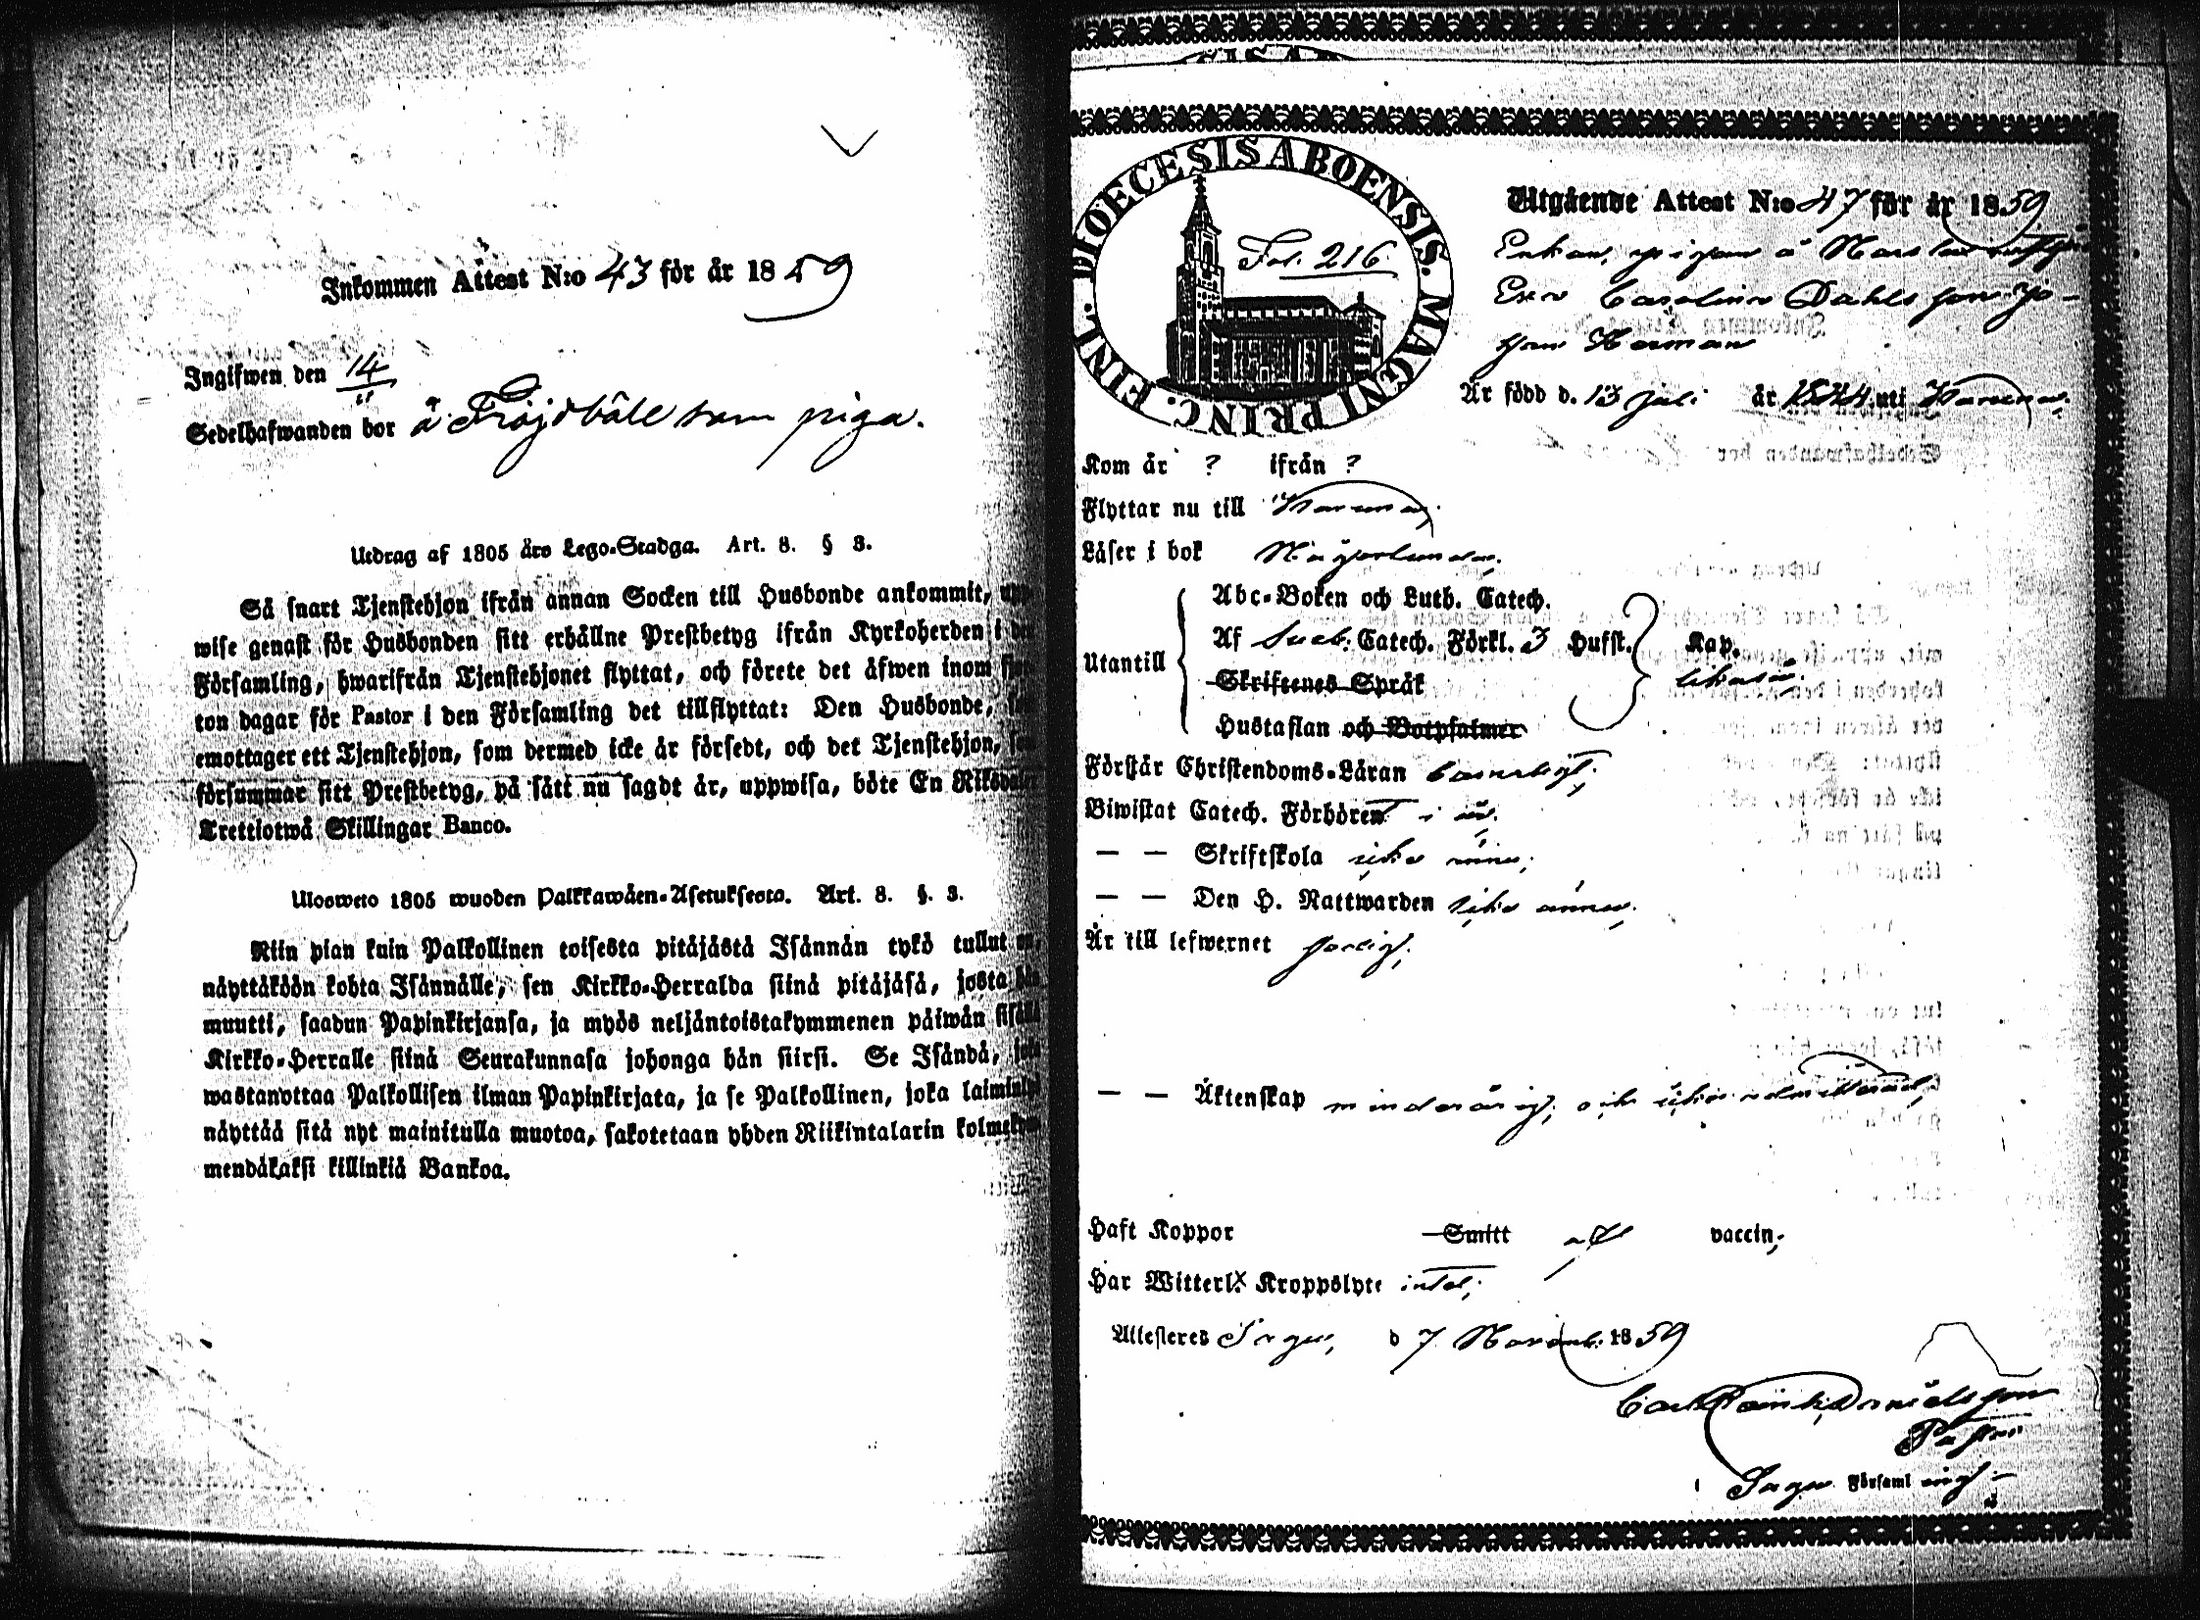 Inkommen Attest N:o 43 för år 1859
Ingifwen den 14/11
Sedelhafwanden bor å Fröjdböle som piga.
Utdrag af 1805 års Lego-Stadga. Art. 8. § 3.
Så snart Tjenstehjon ifrån annan Socken till Husbonde ankommit, upp-
wise genast för Husbonden sitt erhållne Prestbetyg ifrån Kyrkoherden i den
Församling, hwarifrån Tjenstehjonet flyttat, och förete det äfwen inom fjor-
ton dagar för Pastor i den Församling det tillflyttat: Den Husbonde, som
emottager ett Tjenstehjon, som dermed icke är försedt, och det Tjenstehjon, som
försummar sitt Prestbetyg, på sätt nu sagdt är, uppwisa, böte En Riksdaler
Trettiotwå Skillingar Banco.
Ulosweto 1805 wuoden Palkkawäen-Asetuksesta. Art. 8. §. 3.
Niin pian kuin Palkollinen toisesta pitäjästä Isännän tykö tullut on,
näyttäköön kohta Isännälle, sen Kirkko-Herralda siinä pitäjäsä, josta hän
muutti, saadun Papinkirjansa, ja myös neljäntoistakymmenen päiwän sisällä
Kirkko-Herralle siinä Seurakunnasa johonga hän siirsi. Se Isändä, joka
wastanottaa Palkollisen ilman Papinkirjata, ja se Palkollinen, joka laiminlyö
näyttää sitä nyt mainitulla muotoa, sakotetaan yhden Riikintalarin kolmekym-
mendäkaksi killinkiä Bankoa.
DIOECESIS ABOENSIS. MAGNI PRINC. FINL.
Fol. 216.
Utgående Attest N:o 47 för år 1859
Enkan, pigan å
Eva Carolina Dahls son Jo-
han Herman
Är född d. 13 Juli år 1844 uti Karuna,
Kom år ? ifrån ?
Flyttar nu till Karuna,
Läser i bok Någorlunda,
Utantill
Abc-Boken och Luth. Catech.
Af Sveb. Catech. Förkl. 3 Hufst. Kap.
Skriftenes Språk likaså,
Hustaflan och Botpsalmer
Förstår Christendoms-Läran
Biwistat Catech. Förhören i år.
— — Skriftskola icke ännu;
— — Den H. Nattwarden icke ännu,
Är till lefwernet
— — Äktenskap minderårig, och icke admitterad,
Haft Koppor Smitt af vaccin;
Har Witterl. Kroppslyte intet;
Attesteres Sagu, d 7 Novemb. 1859
Pastor
i Sagu Församling